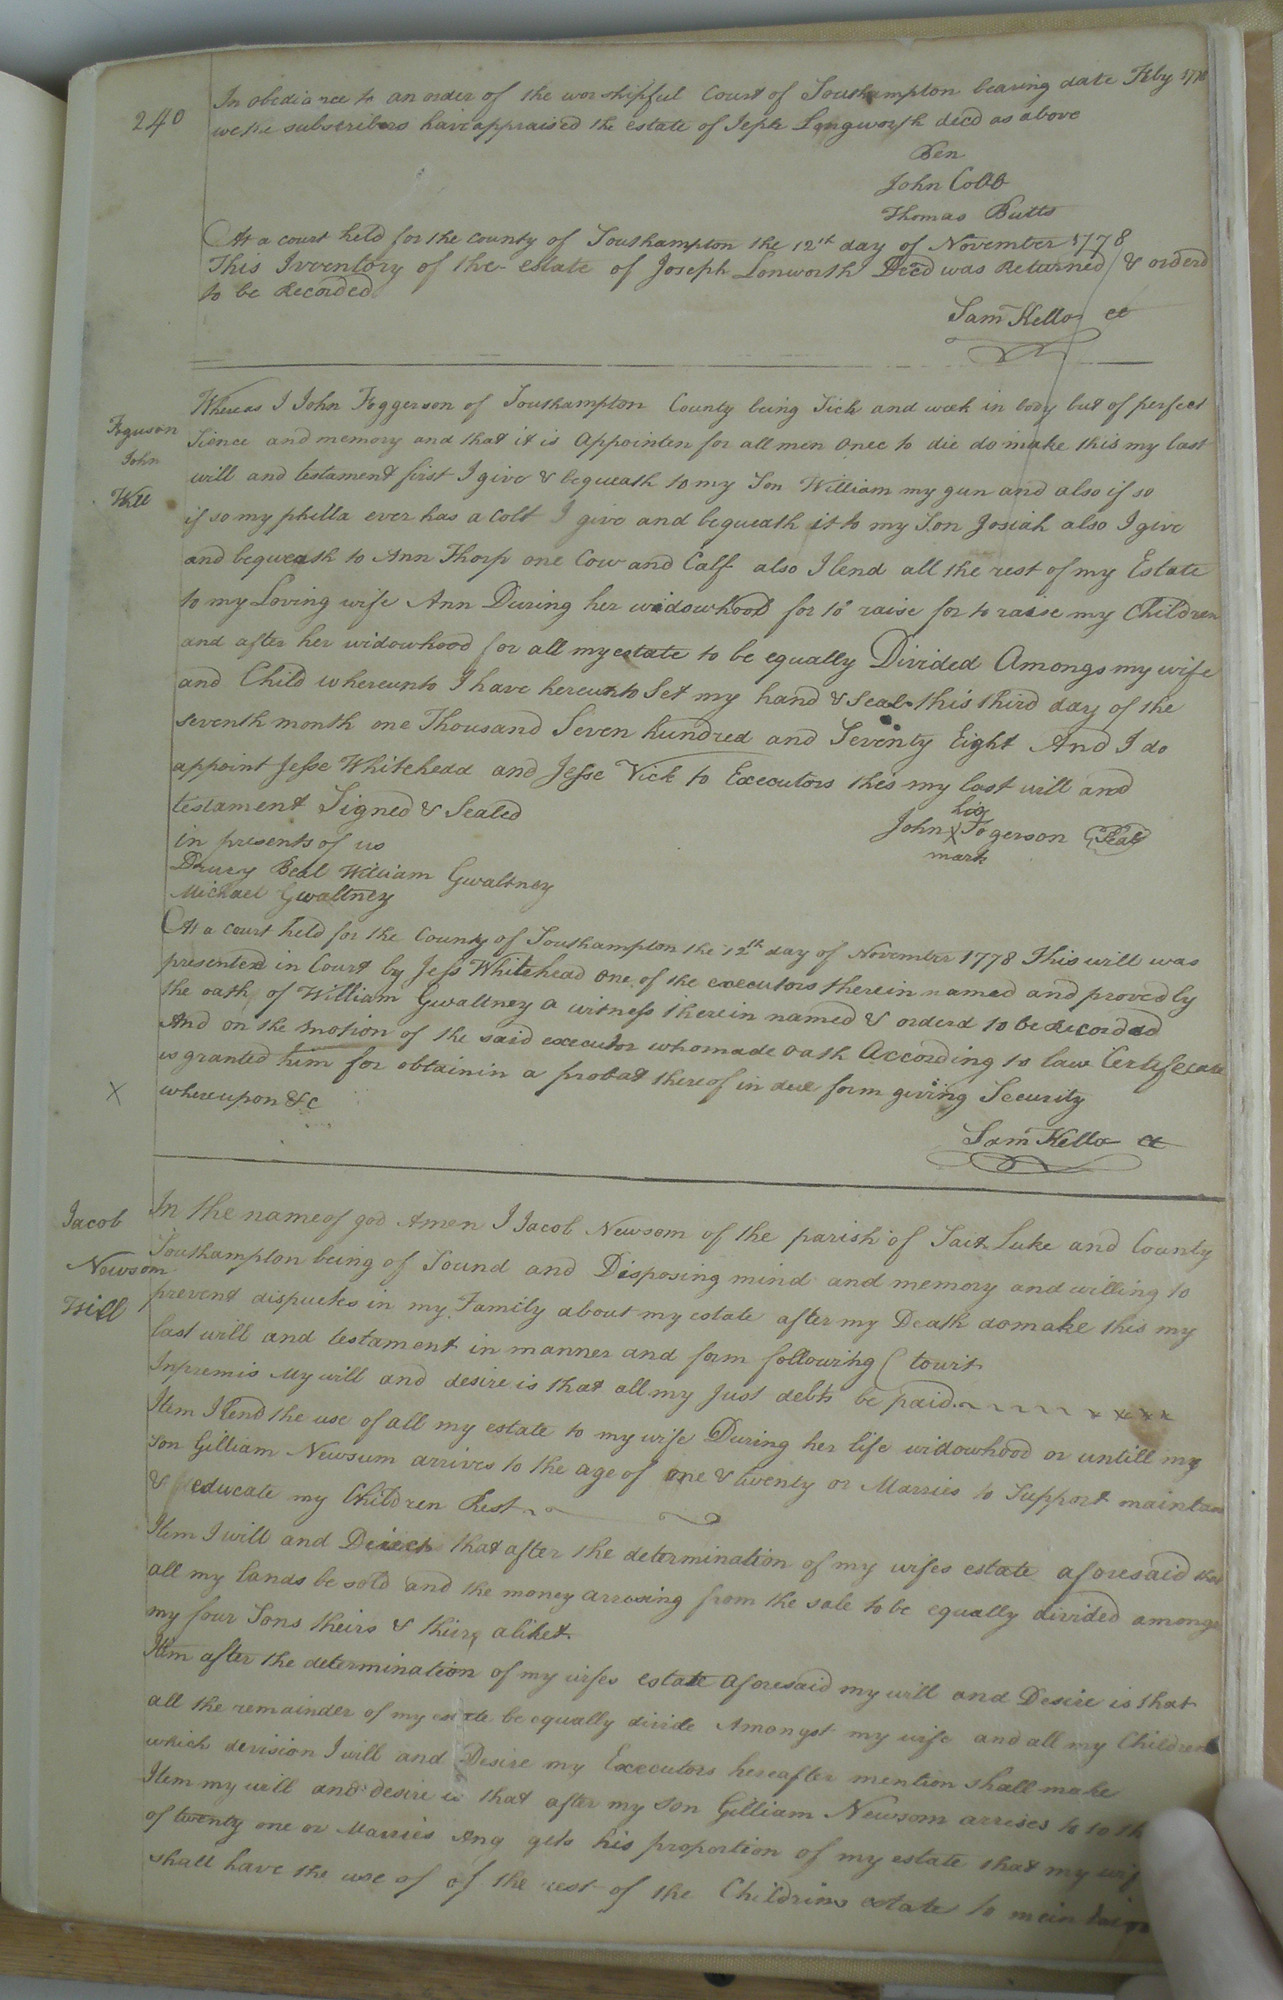 240
In obedience to an order of the worshipful Court of Southampton bearing date Feby 1778
we the subscribers have appraised the estate of Jeph Longworth decd as above
Ben
John Cobb
Thomas Butts
At a court held for the county of Southampton the 12th day of November 1778
This Inventory of the estate of Joseph Lonworth Decd was Returned & orderd
to be Recorded
Sam Kello ct
Foguson
John
Will
Whereas I John Foggerson of Southampton County being Sick and week in body but of perfect
Sience and memory and that it is Appointen for all men once to die do make this my last
will and testament first I give & bequeath to my Son William my gun and also if so
if so my phılla ever has a Colt I give and bequeath it to my Son Josiah also I give
and bequeath to Ann Thorp one Cow and Calf also I lend all the rest of my Estate
to my Loving wife Ann During her widowhood for to raise for to raise my Children
and after her widowhood for all my estate to be equally Divided Amongs my wife
and Child whereunto I have hereunto Set my hand & Seal this third day of the
seventh month one Thousand Seven hundred and Seventy Eight And I do
appoint Jesse Whitehead and Jesse Vick to Executors this my last will and
testament Signed & Sealed
in presents of us
his
John X Fogerson Seal
mark
Drury Beal William Gwaltney
Michael Gwaltney
At a Court held for the County of Southampton the 12th day of November 1778 This will was
presented in Court by Jess Whitehead one of the executors therein named and proved by
the oath of William Gwaltney a witness therein named & orderd to be Recorded
And on the motion of the said executor who made oath According to law Certificate
is granted him for obtainin a probat thereof in due form giving Security
X
whereupon &c
Sam Kello ct
Jacob
Newsom
Will
In the name of god Amen I Jacob Newsom of the parish of Saet Luke and County
Southampton being of Sound and Disposing mind and memory and willing to
prevent disputes in my Family about my estate after my Death do make this my
last will and testament in manner and form following ( towit
Inpremis My will and desire is that all my just debts be paid
Item I lend the use of all my estate to my wife During her life widowhood or untill my
son Gilliam Newsum arrives to the age of one & twenty or Marries to Support maintain
& educate my Children Rest
Item I will and Direct that after the determination of my wifes estate aforesaid that
all my lands be sold and the money arrosing from the sale to be equally divided amongs
my four Sons theirs & thiers aliket
Item after the determination of my wifes estate aforesaid my will and Desire is that
all the remainder of my estate be equally divide Amongst my wife and all my Children
which devision I will and Desire my Executors hereafter mention shall make
Item my will and desire is that after my son Gilliam Newsom arrises to to th
of twenty one or Marries Ang gets his proportion of my estate that my wif
shall have the use of of the rest of the Childrins estate to maintain